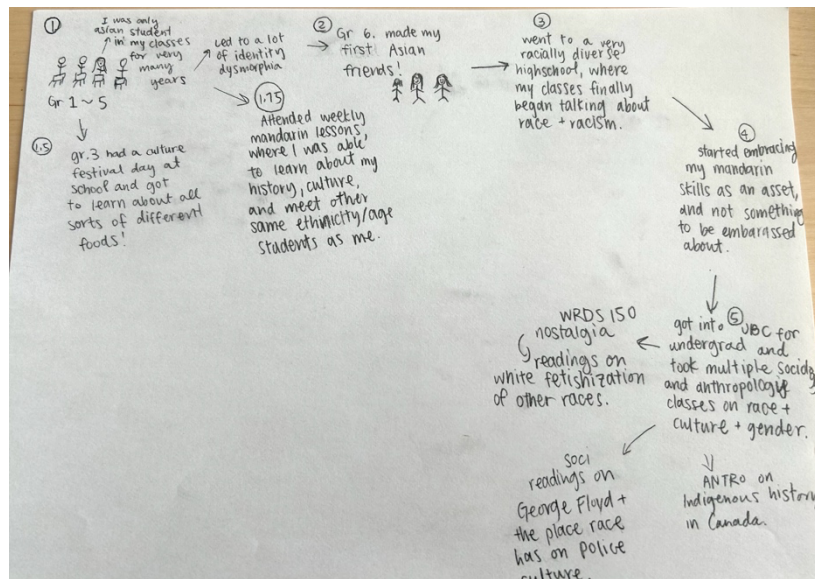 ①
I was only
asian student
in my classes
for very
many
years
Gr 1~5
led to a lot
of identity
dysmorphia
1.5
gr.3 had a culture
festival day at
school and got
to learn about all
sorts of different
foods!
1.75
Attended weekly
mandarin lessons,
where I was able
to learn about my
history, culture,
and meet other
same ethnicity/age
students as me.
②
Gr 6. made my
first Asian
friends!
③
went to a very
racially diverse
highschool, where
my classes finally
began talking about
race + racism.
④
started embracing
my mandarin
skills as an asset,
and not something
to be embarassed
about.
⑤
got into UBC for
undergrad and
took multiple
and anthropology
classes on race +
culture + gender.
WRDS 150
nostalgia
readings on
white fetishization
of other races.
SOCI
readings on
George Floyd +
the place race
has on police
culture.
ANTRO on
Indigenous history
in Canada.